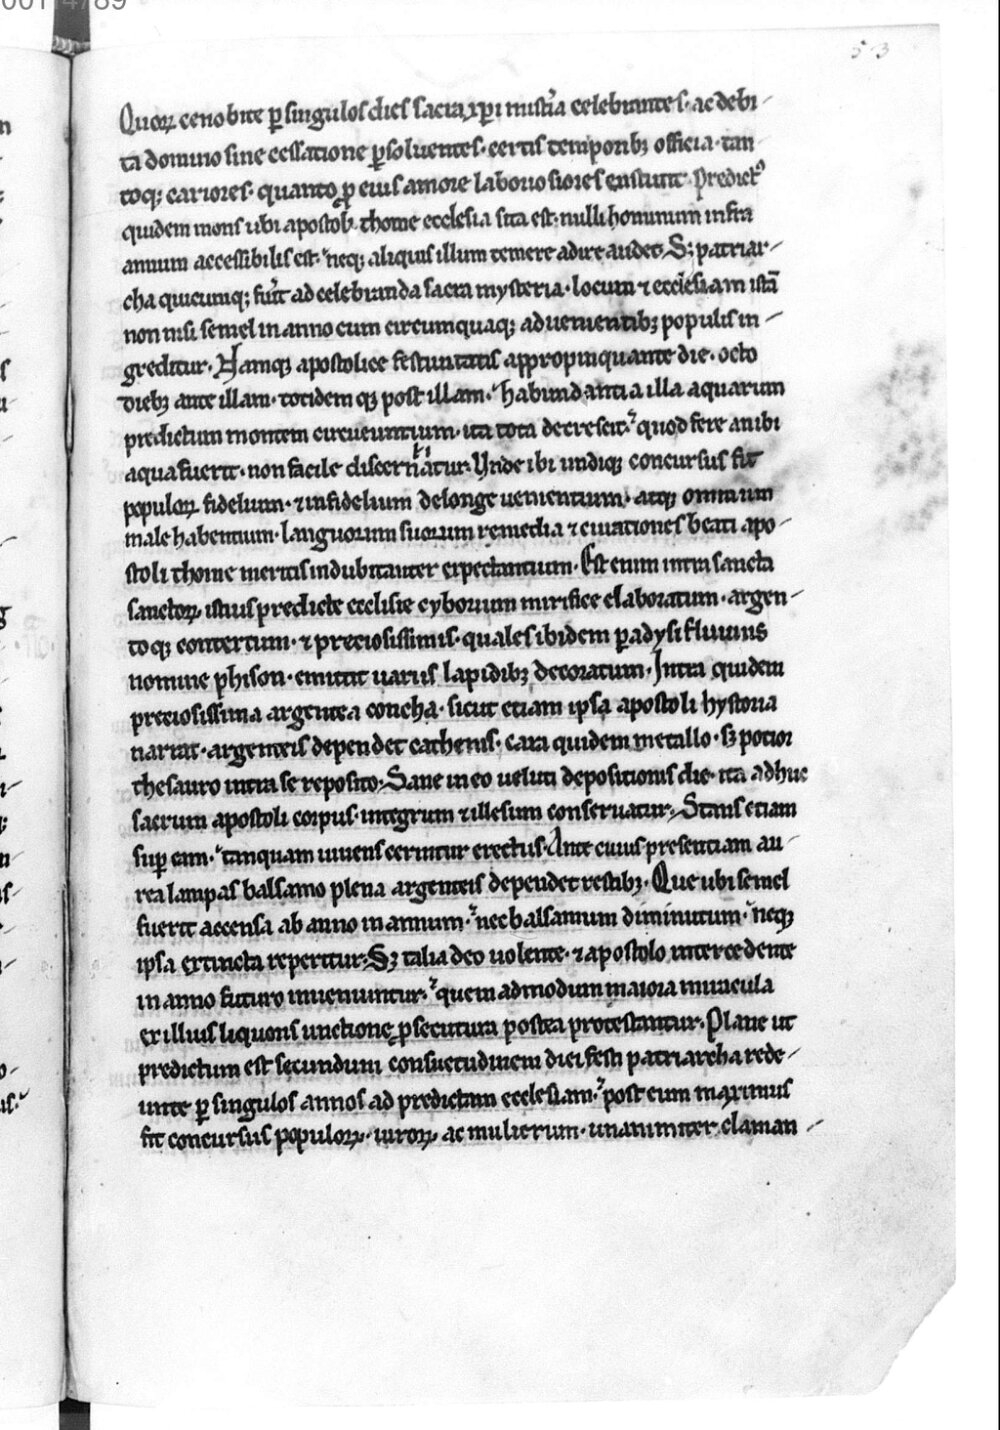 53
Quoꝝ cenobite ꝑ singulos dies sacra xp̄i mist̾ia celebrantes · ac debi-
ta domino sine cessatione ꝑsoluentes · certis temporibꝫ officia · tan
toqꝫ cariores · quanto ꝓ eius amore laboriosiores existunt · Predict⁹
quidem mons ubi apostoli thome ecclesia sita est · nulli hominum infra
annum accessibilis est · neqꝫ aliquis illum temere adire audet · Sꝫ patriar-
cha quicumqꝫ fu̾it ad celebranda sacra mysteria · locum ⁊ ecclesiam istā
non nisi semel in anno cum circumquaqꝫ aduenientibꝫ populis in-
greditur · Namqꝫ apostolice festiuitatis appropinquante die · octo
diebꝫ ante illam · totidemqꝫ post illam · habundantia illa aquarum
predictum montem circueuntium · ita tota decrescit · quod fere an ibi
aqua fuerit · non facile discernatur · Unde ibi undiqꝫ concursus fit
populoꝝ fidelium · ⁊ infidelium de longe uenientium · atqꝫ omnium
male habentium · languorum suorum remedia ⁊ curationes beati apo-
stoli thome meritis indubitanter expectantium · Est enim intra sancta
sanctoꝝ istius predicte ecclesie cyborium mirifice elaboratum · argen-
toqꝫ contextum · ⁊ preciosissimis · quales ibidem paradysi fluuius
nomine phison · emittit uariis lapidibꝫ decoratum · Intra quidem
preciosissima argentea concha · sicut etiam ipsa apostoli hystoria
narrat · argenteis dependet cathenis · cara quidem metallo · sꝫ potior
thesauro intra se reposito · Sane in eo ueluti depositionis die · ita adhuc
sacrum apostoli corpus · integrum ⁊ illesum conseruatur · Stans etiam
suꝑ eam · tanquam uiuens cernitur erectus · Ante cuius presentiam au-
rea lampas balsamo plena argenteis dependet restibꝫ · Que ubi semel
fuerit accensa ab anno in annum · nec balsamum diminutum · neqꝫ
ipsa extincta reperitur · Sꝫ talia deo uolente · ⁊ apostolo intercedente
in anno futuro inueniuntur · quemadmodum maiora miracula
ex illius liquoris unctione ꝑsecutura postea protestantur · Plane ut
predictum est secundum consuetudinem diei festi patriarcha rede-
unte ꝑ singulos annos ad predictam ecclesiam · post eum maximus
fit concursus populoꝝ · uiroꝝ ac mulierum · unanimiter claman-